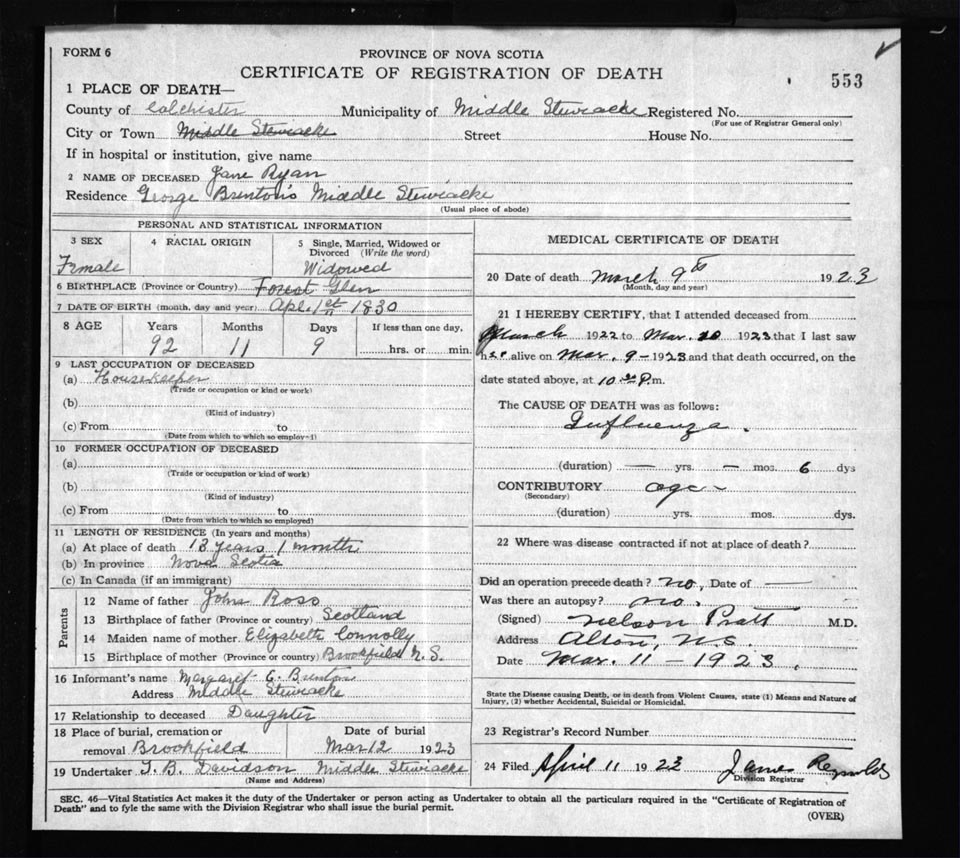 FORM 6
PROVINCE OF NOVA SCOTIA
CERTIFICATE OF REGISTRATION OF DEATH
553
1 PLACE OF DEATH—
County of Colchester Municipality of Middle Stewiacke Registered No.
(For use of Registrar General only)
City or Town Middle Stewiacke Street House No.
If in hospital or institution, give name
2 NAME OF DECEASED Jane Ryan
Residence George Brenton's Middle Stewiacke
(Usual place of abode)
PERSONAL AND STATISTICAL INFORMATION
3 SEX 4 RACIAL ORIGIN 5 Single, Married, Widowed or
Divorced (Write the word)
Female Widowed
6 BIRTHPLACE (Province or Country) Forest Glen
7 DATE OF BIRTH (month, day and year) Apl. 1st 1830
8 AGE Years Months Days If less than one day,
92 11 9 hrs. or min.
9 LAST OCCUPATION OF DECEASED
(a) Housekeeper
(Trade or occupation or kind or work)
(b)
(Kind of industry)
(c) From to
(Date from which to which so employ-1)
10 FORMER OCCUPATION OF DECEASED
(a)
(Trade or occupation or kind of work)
(b)
(Kind of industry)
(c) From to
(Date from which to which so employed)
11 LENGTH OF RESIDENCE (In years and months)
(a) At place of death 13 years 1 month
(b) In province Nova Scotia
(c) In Canada (if an immigrant)
Parents
12 Name of father John Ross
13 Birthplace of father (Province or country) Scotland
14 Maiden name of mother Elizabeth Connolly
15 Birthplace of mother (Province or country) Brookfield N.S.
16 Informant's name Margaret G. Brenton
Address Middle Stewiacke
17 Relationship to deceased Daughter
18 Place of burial, cremation or Date of burial
removal Brookfield Mar 12 1923
19 Undertaker T. B. Davidson Middle Stewiacke
(Name and Address)
MEDICAL CERTIFICATE OF DEATH
20 Date of death March 9th 1923
(Month, day and year)
21 I HEREBY CERTIFY, that I attended deceased from
March 1922 to Mar. 10 1923 that I last saw
her alive on Mar. 9 - 1923 and that death occurred, on the
date stated above, at 10 30 P.m.
The CAUSE OF DEATH was as follows:
Influenza.
(duration) — yrs. — mos. 6 dys
CONTRIBUTORY age
(Secondary)
(duration) yrs. mos. dys.
22 Where was disease contracted if not at place of death?
Did an operation precede death? no, Date of —
Was there an autopsy? no.
(Signed) Nelson Pratt M.D.
Address Alton, N.S.
Date Mar. 11 - 1923.
State the Disease causing Death, or in death from Violent Causes, state (1) Means and Nature of
Injury, (2) whether Accidental, Suicidal or Homicidal.
23 Registrar's Record Number
24 Filed April 11 1923 James Reynolds
Division Registrar
SEC. 46—Vital Statistics Act makes it the duty of the Undertaker or person acting as Undertaker to obtain all the particulars required in the "Certificate of Registration of
Death" and to fyle the same with the Division Registrar who shall issue the burial permit.
(OVER)